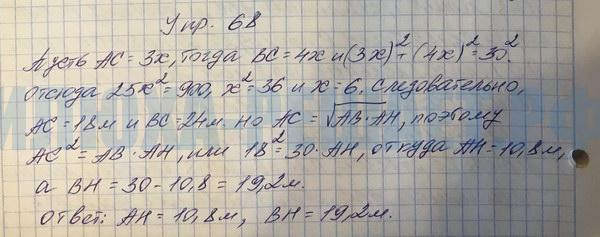 Упр. 68
Пусть AC = 3x, тогда BC = 4x и (3x)² + (4x)² = 30².
Отсюда 25x² = 900, x² = 36 и x = 6. Следовательно,
AC = 18м и BC = 24м. но AC = √AB·AH, поэтому
AC² = AB·AH, или 18² = 30·AH, откуда AH = 10,8м,
а BH = 30 - 10,8 = 19,2м.
ответ: AH = 10,8м, BH = 19,2м.